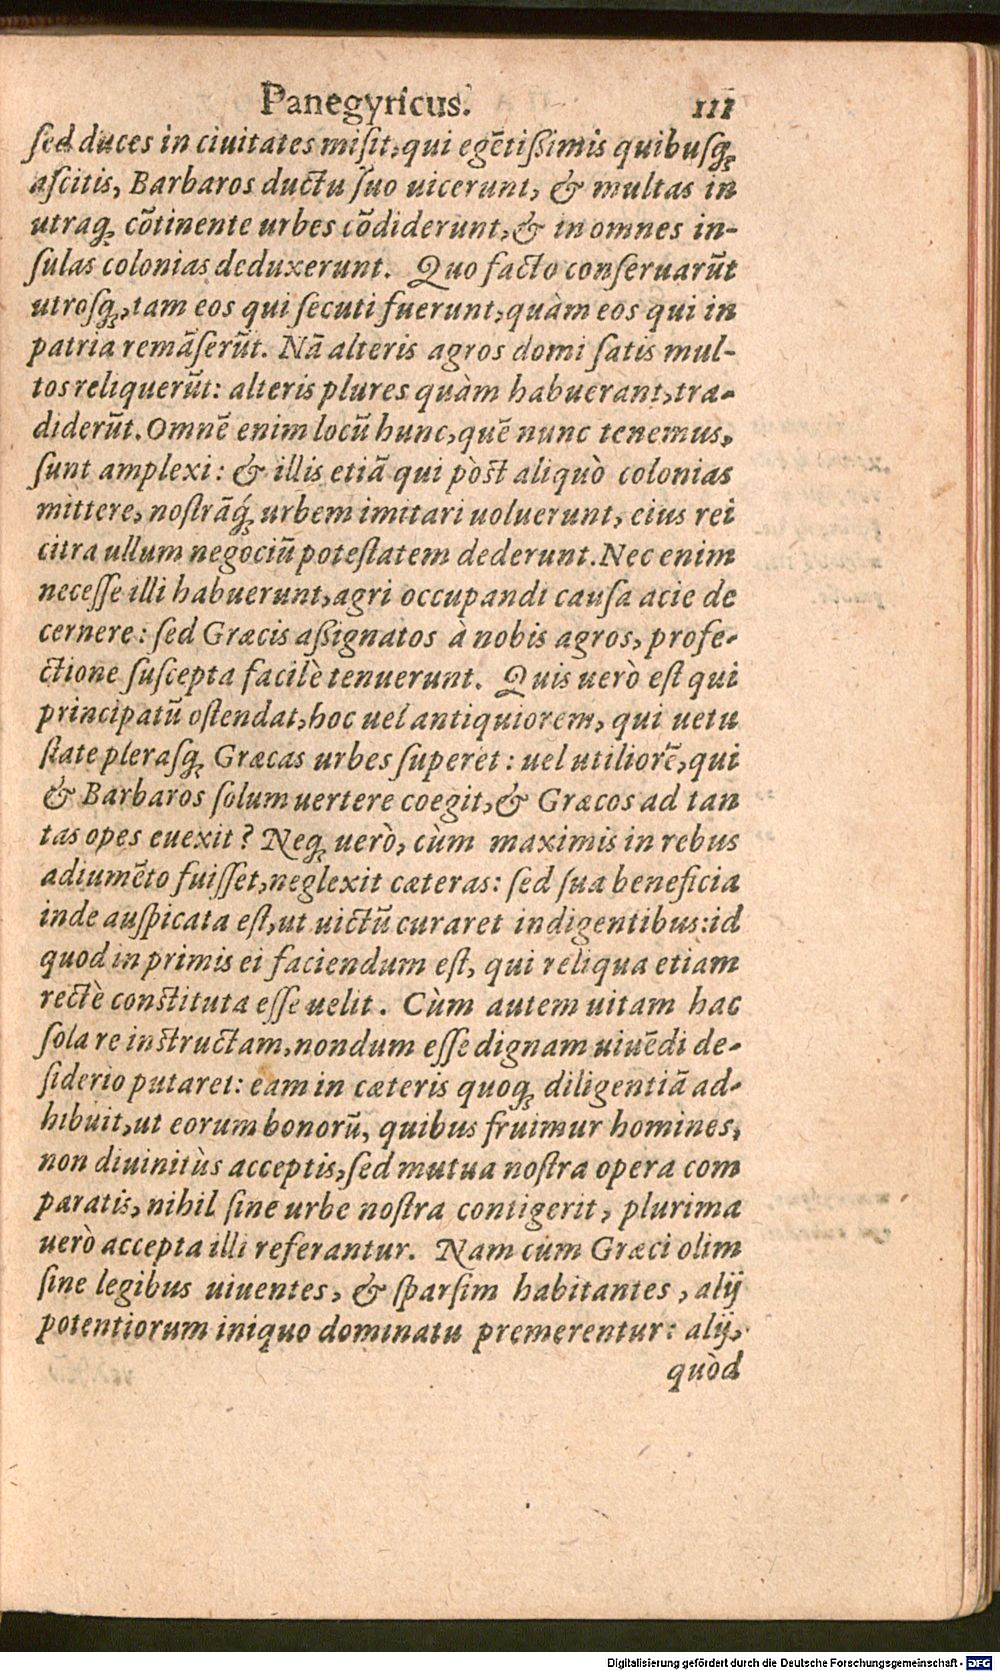 Panegyricus. 111
ſed duces in ciuitates miſit, qui egẽtiſsimis quibuſq;
aſcitis, Barbaros ductu ſuo uicerunt, & multas in
utraq; cõtinente urbes cõdiderunt, & in omnes in-
ſulas colonias deduxerunt. Quo facto conſeruarũt
utroſq;, tam eos qui ſecuti fuerunt, quàm eos qui in
patria remãſerũt. Nã alteris agros domi ſatis mul-
tos reliquerũt: alteris plures quàm habuerant, tra-
diderũt. Omnẽ enim locũ hunc, quẽ nunc tenemus,
ſunt amplexi: & illis etiã qui pòst aliquò colonias
mittere, noſtrãq́; urbem imitari uoluerunt, eius rei
citra ullum negociũ poteſtatem dederunt. Nec enim
neceſſe illi habuerunt, agri occupandi cauſa acie de
cernere: ſed Græcis aſsignatos à nobis agros, profe-
ctione ſuſcepta facilè tenuerunt. Quis uerò eſt qui
principatũ oſtendat, hoc uel antiquiorem, qui uetu
ſtate pleraſq; Græcas urbes ſuperet: uel utiliorẽ, qui
& Barbaros ſolum uertere coegit, & Græcos ad tan
tas opes euexit? Neq; uerò, cùm maximis in rebus
adiumẽto fuiſſet, neglexit cæteras: ſed ſua beneficia
inde auſpicata eſt, ut uictũ curaret indigentibus: id
quod in primis ei faciendum eſt, qui reliqua etiam
rectè conſtituta eſſe uelit. Cùm autem uitam hac
ſola re instructam, nondum eſſe dignam uiuẽdi de-
ſiderio putaret: eam in cæteris quoq; diligentiã ad-
hibuit, ut eorum bonorũ, quibus fruimur homines,
non diuinitùs acceptis, ſed mutua noſtra opera com
paratis, nihil ſine urbe noſtra contigerit, plurima
uerò accepta illi referantur. Nam cùm Græci olim
ſine legibus uiuentes, & ſparſim habitantes, alij
potentiorum iniquo dominatu premerentur: alij,
quòd
Digitalisierung gefördert durch die Deutsche Forschungsgemeinschaft - DFG